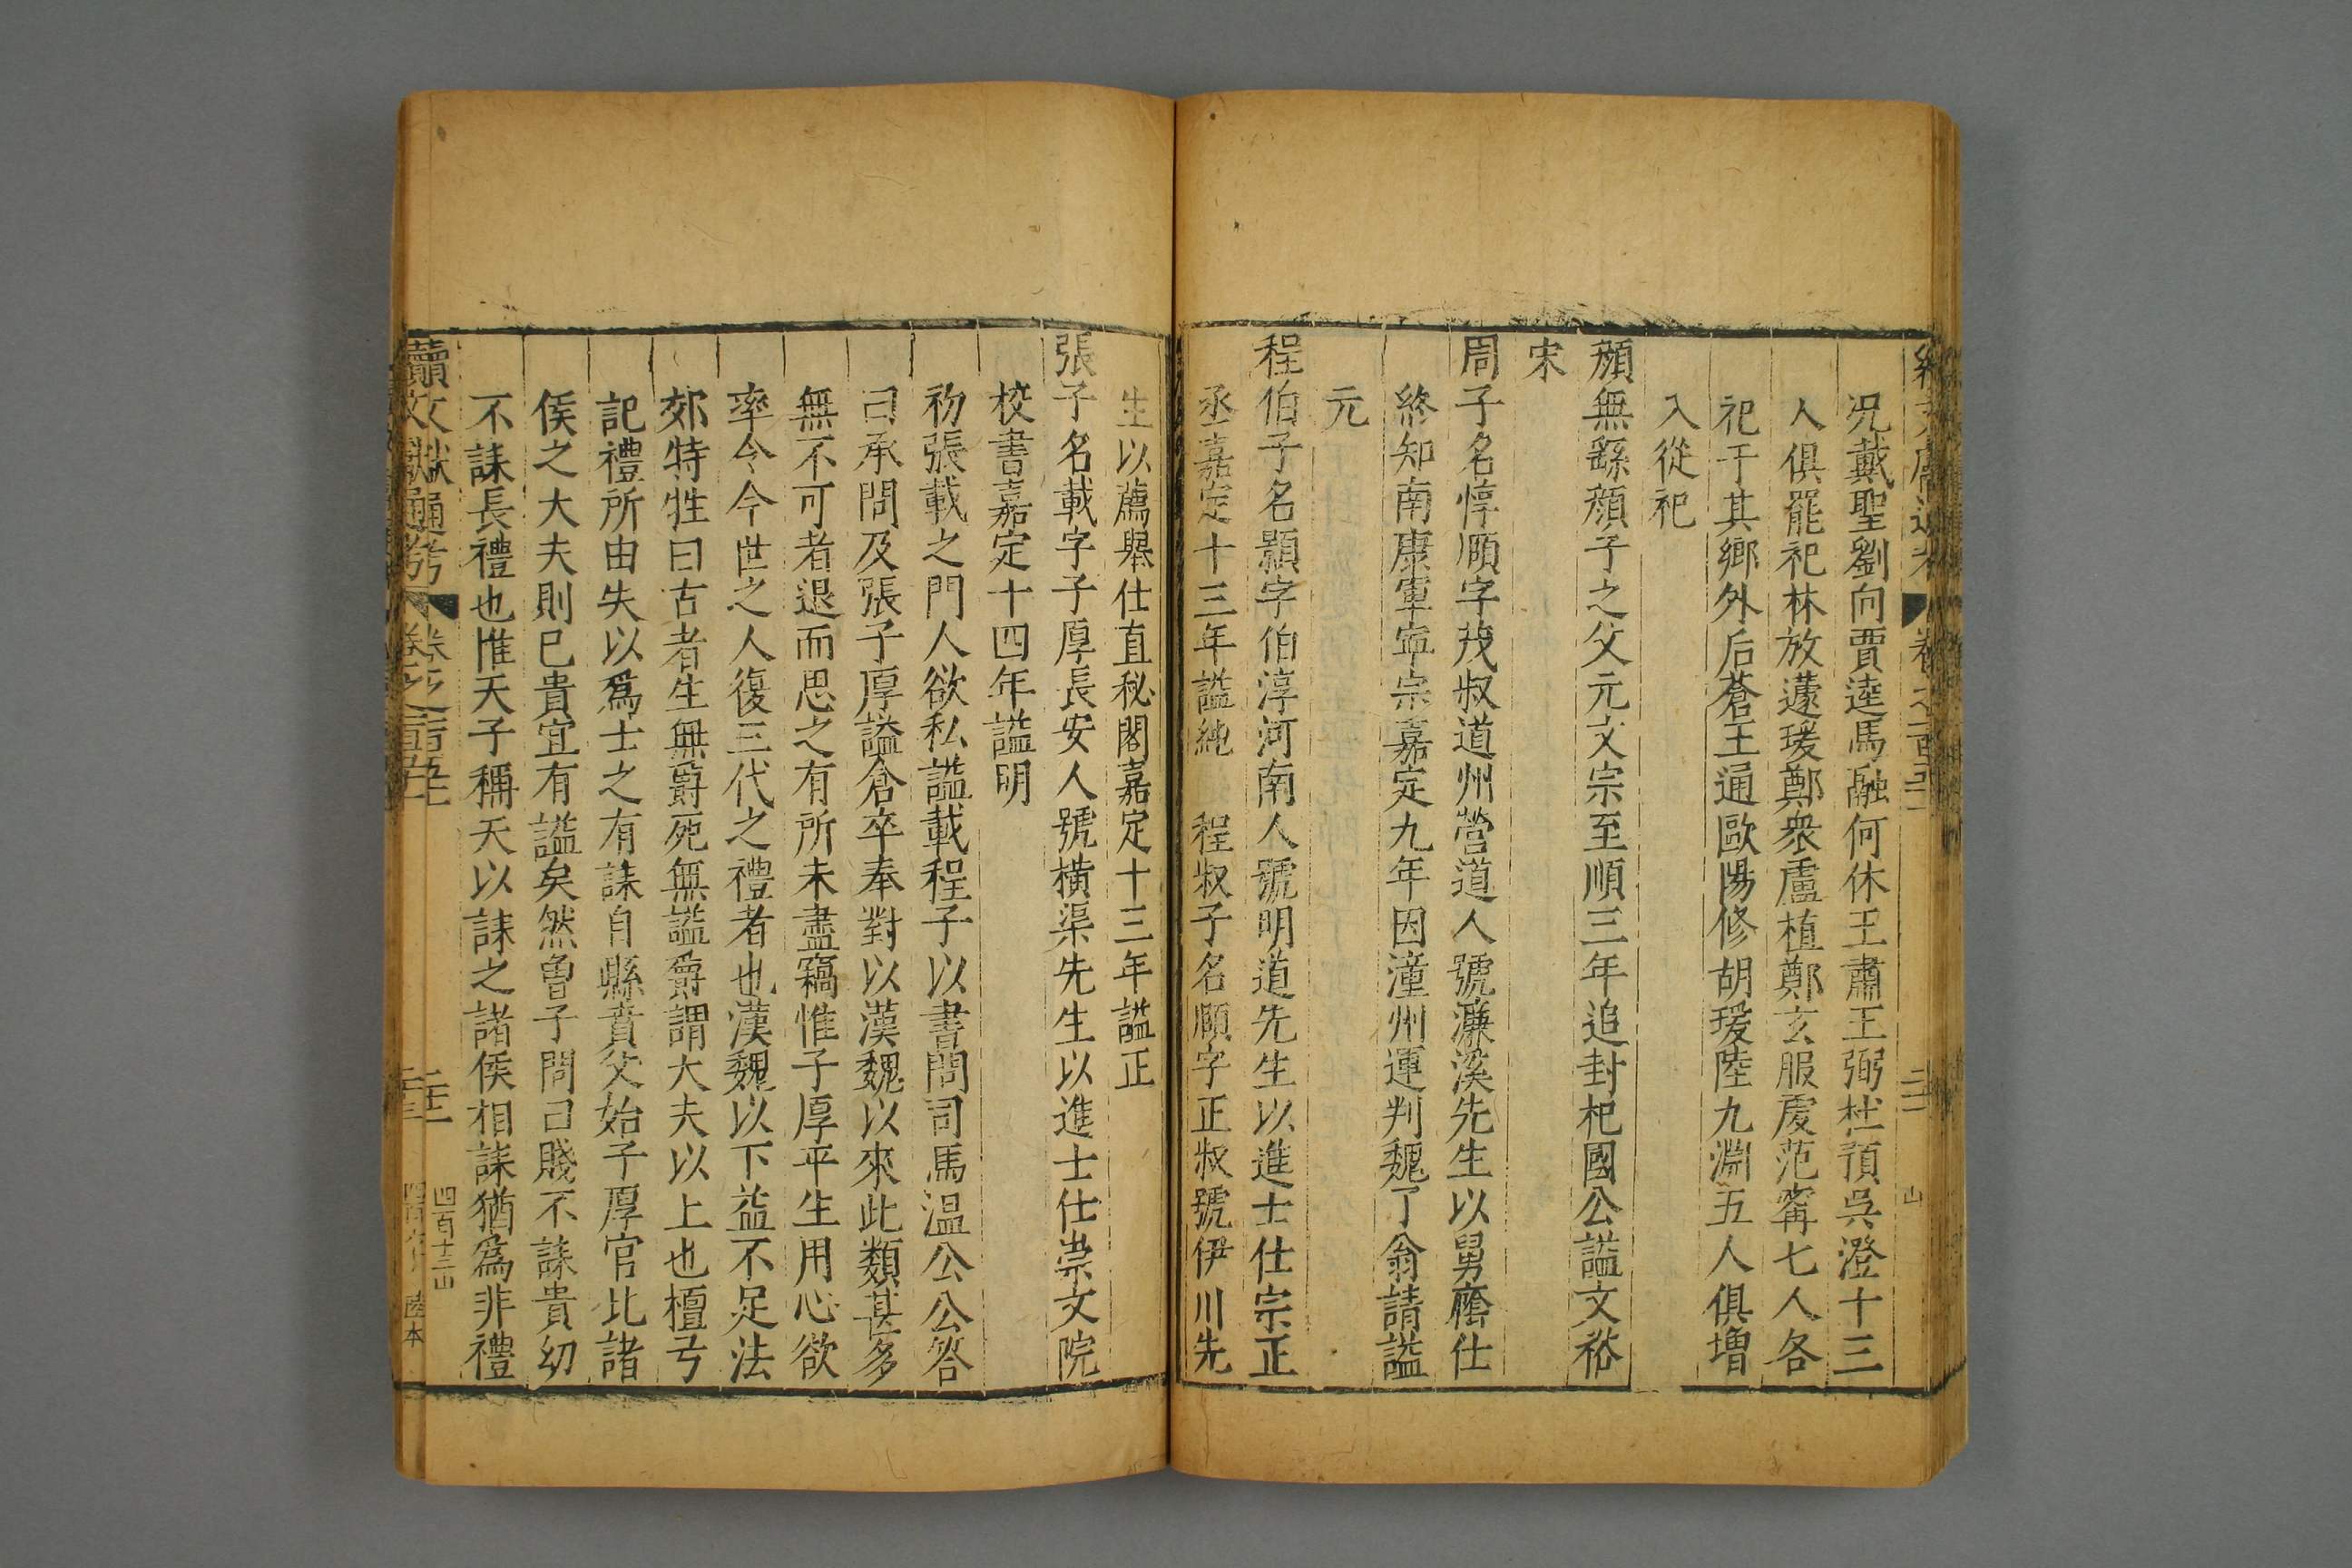 況戴聖劉向賈逵馬融何休王肅王弼杜預吳澄十三
人俱罷祀林放蘧瑗鄭衆盧植鄭玄服虔范甯七人各
祀于其鄉外后蒼王通歐陽修胡瑗陸九淵五人俱增
入從祀
顔無繇顔子之父元文宗至順三年追封杞國公謚文裕
宋
周子名惇頤字茂叔道州營道人號濂溪先生以舅廕仕
終知南康軍寧宗嘉定九年因潼州運判魏了翁請謚
元
程伯子名顥字伯淳河南人號明道先生以進士仕宗正
丞嘉定十三年謚純 程叔子名頤字正叔號伊川先
生以薦舉仕直秘閣嘉定十三年謚正
張子名載字子厚長安人號横渠先生以進士仕崇文院
校書嘉定十四年謚明
初張載之門人欲私謚載程子以書問司馬温公公答
曰承問及張子厚謚倉卒奉對以漢魏以來此類甚多
無不可者退而思之有所未盡竊惟子厚平生用心欲
率今今世之人復三代之禮者也漢魏以下益不足法
郊特牲曰古者生無爵死無謚爵謂大夫以上也檀弓
記禮所由失以爲士之有誄自縣賁父始子厚官比諸
侯之大夫則已貴宜有謚矣然魯子問曰賤不誄貴幼
不誄長禮也惟天子稱天以誄之諸侯相誄猶爲非禮
續文獻通考 卷之
四百十三山